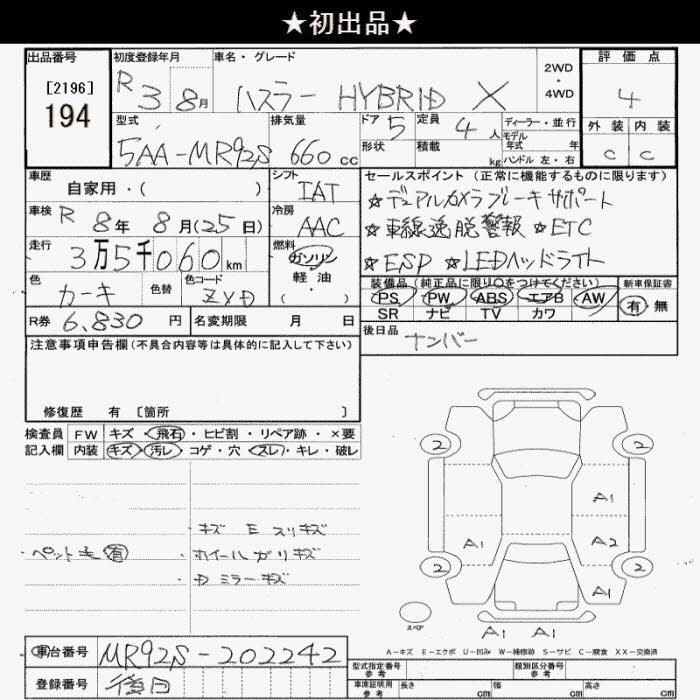 ★初出品★
出品番号 初度登録年月 車名・グレード 2WD・4WD 評価点
[2196] 194 R3 8月 ハスラー HYBRID X 4
外装 内装
C C
型式 排気量 ドア 5 定員 4人 ディーラー・並行
5AA-MR92S 660cc 形状 積載 kg モデル年式 年
ハンドル 左・右
車歴 自家用・( ) シフト IAT セールスポイント(正常に機能するものに限ります)
車検 R8年 8月(25日) 冷房 AAC ☆デュアルカメラブレーキサポート
☆車線逸脱警報 ☆ETC
走行 3万5千060km 燃料 ガソリン 軽油・( ) ☆ESP ☆LEDヘッドライト
色 カーキ 色替 色コード ZVD 装備品(純正品に限り○をつけてください) 新車保証書
PS PW ABS エアB AW 有・無
SR ナビ TV カワ
R券 6,830円 名変期限 月 日 後日品 ナンバー
注意事項申告欄(不具合内容等は具体的に記入して下さい)
修復歴 有 [箇所 ]
検査員記入欄 FW キズ・飛石・ヒビ割・リペア跡・×要
内装 キズ・汚レ・コゲ・穴・スレ・キレ・破レ
2 2
A1
A1 A2
・キズ E スリキズ
・ペット毛有 ・ホイールガリキズ
2 A1 2
・Dミラーキズ
スペア A1 A1
A-キズ E-エクボ U-凹み W-補修跡 S-サビ C-腐食 XX-交換済
車台番号 MR92S-202242
登録番号 後日
型式指定番号 参考 類別区分番号 参考
車庫証明用 参考 長さ cm 幅 cm 高さ cm